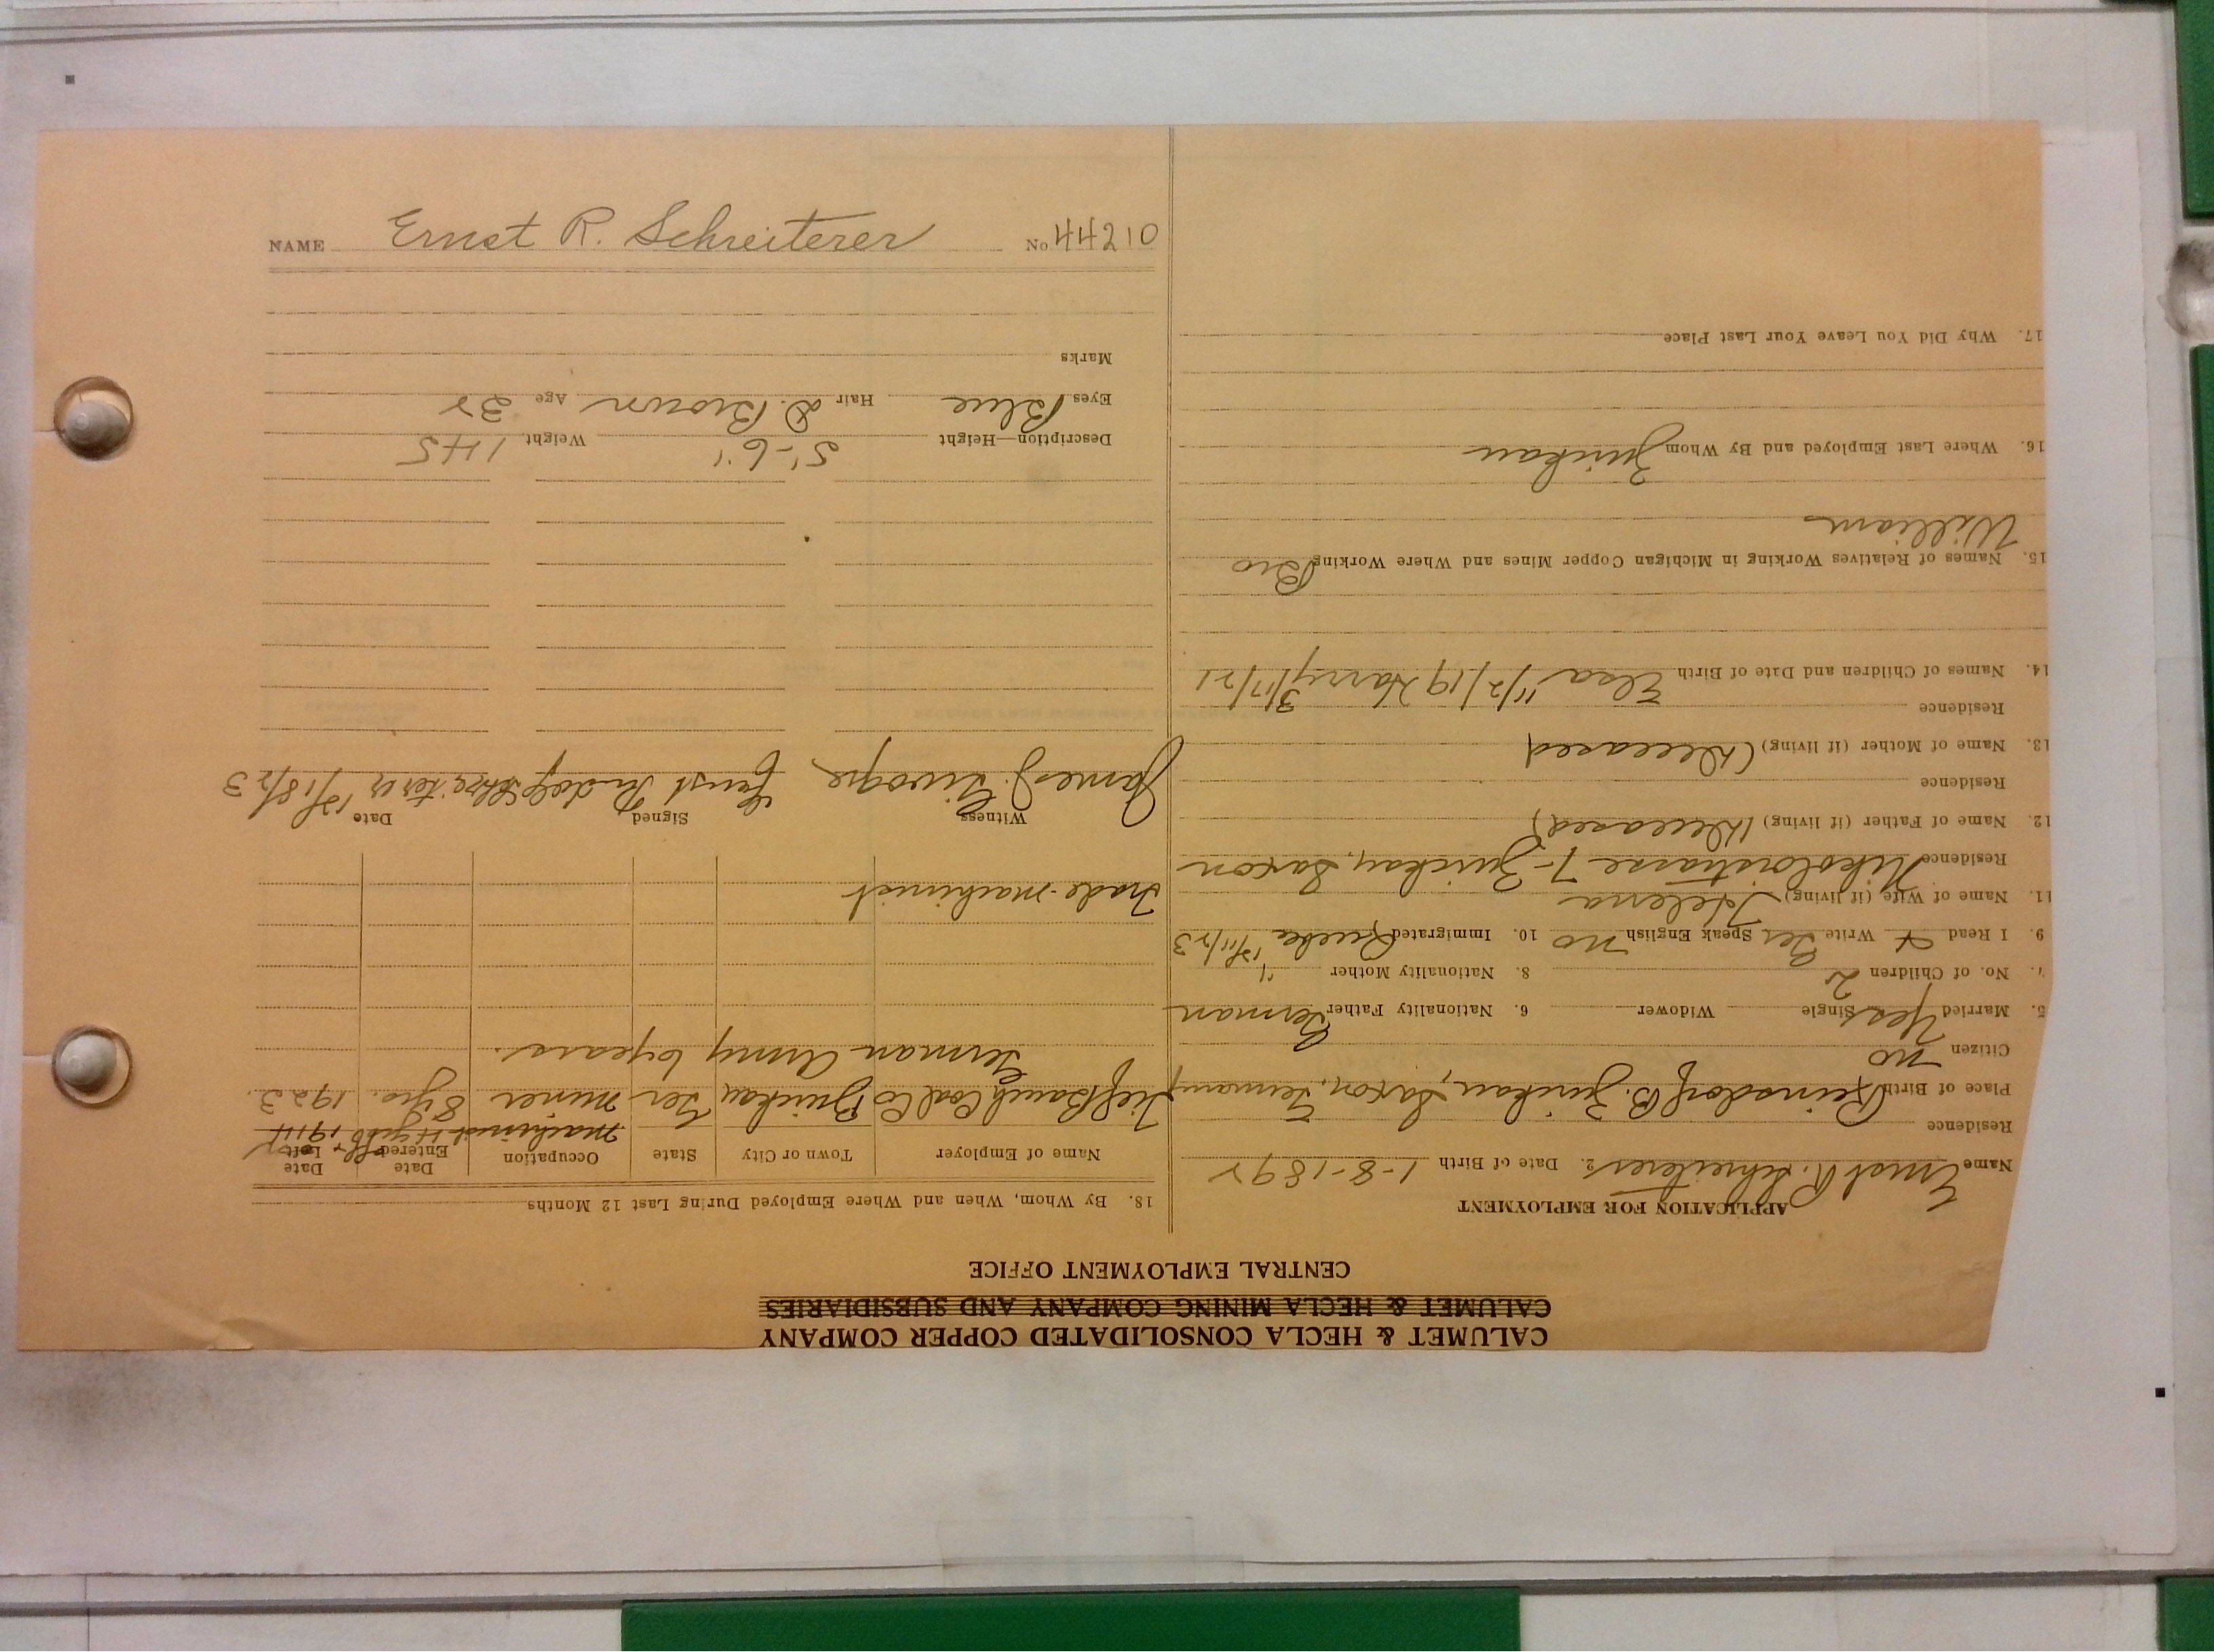 CALUMET & HECLA CONSOLIDATED COPPER COMPANY
CALUMET & HECLA MINING COMPANY AND SUBSIDIARIES
CENTRAL EMPLOYMENT OFFICE
APPLICATION FOR EMPLOYMENT
Name Ernst R. Schreiterer 2. Date of Birth 1-8-1892
Residence
Place of Birth Reinsdorf B. Zwickau, Saxon, Germany
Citizen no
5. Married Yes Single Widower 6. Nationality Father German
7. No. of Children 2 8. Nationality Mother "
9. I Read + Write Ger Speak English no 10. Immigrated 12/11/23
11. Name of Wife (if living) Helena
Residence 7- Zwickau, Saxon
12. Name of Father (if living) (Deceased)
Residence
13. Name of Mother (if living) (Deceased
Residence
14. Names of Children and Date of Birth Elsa 11/2/19 Harry 3/17/21
15. Names of Relatives Working in Michigan Copper Mines and Where Working Bro
William
16. Where Last Employed and By Whom Zwickau
17. Why Did You Leave Your Last Place
18. By Whom, When and Where Employed During Last 12 Months
Name of Employer Town or City State Occupation Date Entered Date Left
machinist 4 yrs 1914
Tiefbauch Coal Co Zwickau Ger miner 8 yrs. 1923.
German Army 6 years.
Trade-machinist
Witness Signed Date
James J. Ernst Rudolf Schreiterer 12/18/23
Description—Height 5'-6" Weight 145
Eyes Blue Hair D. Brown Age 32
Marks
NAME Ernst R. Schreiterer No 44210